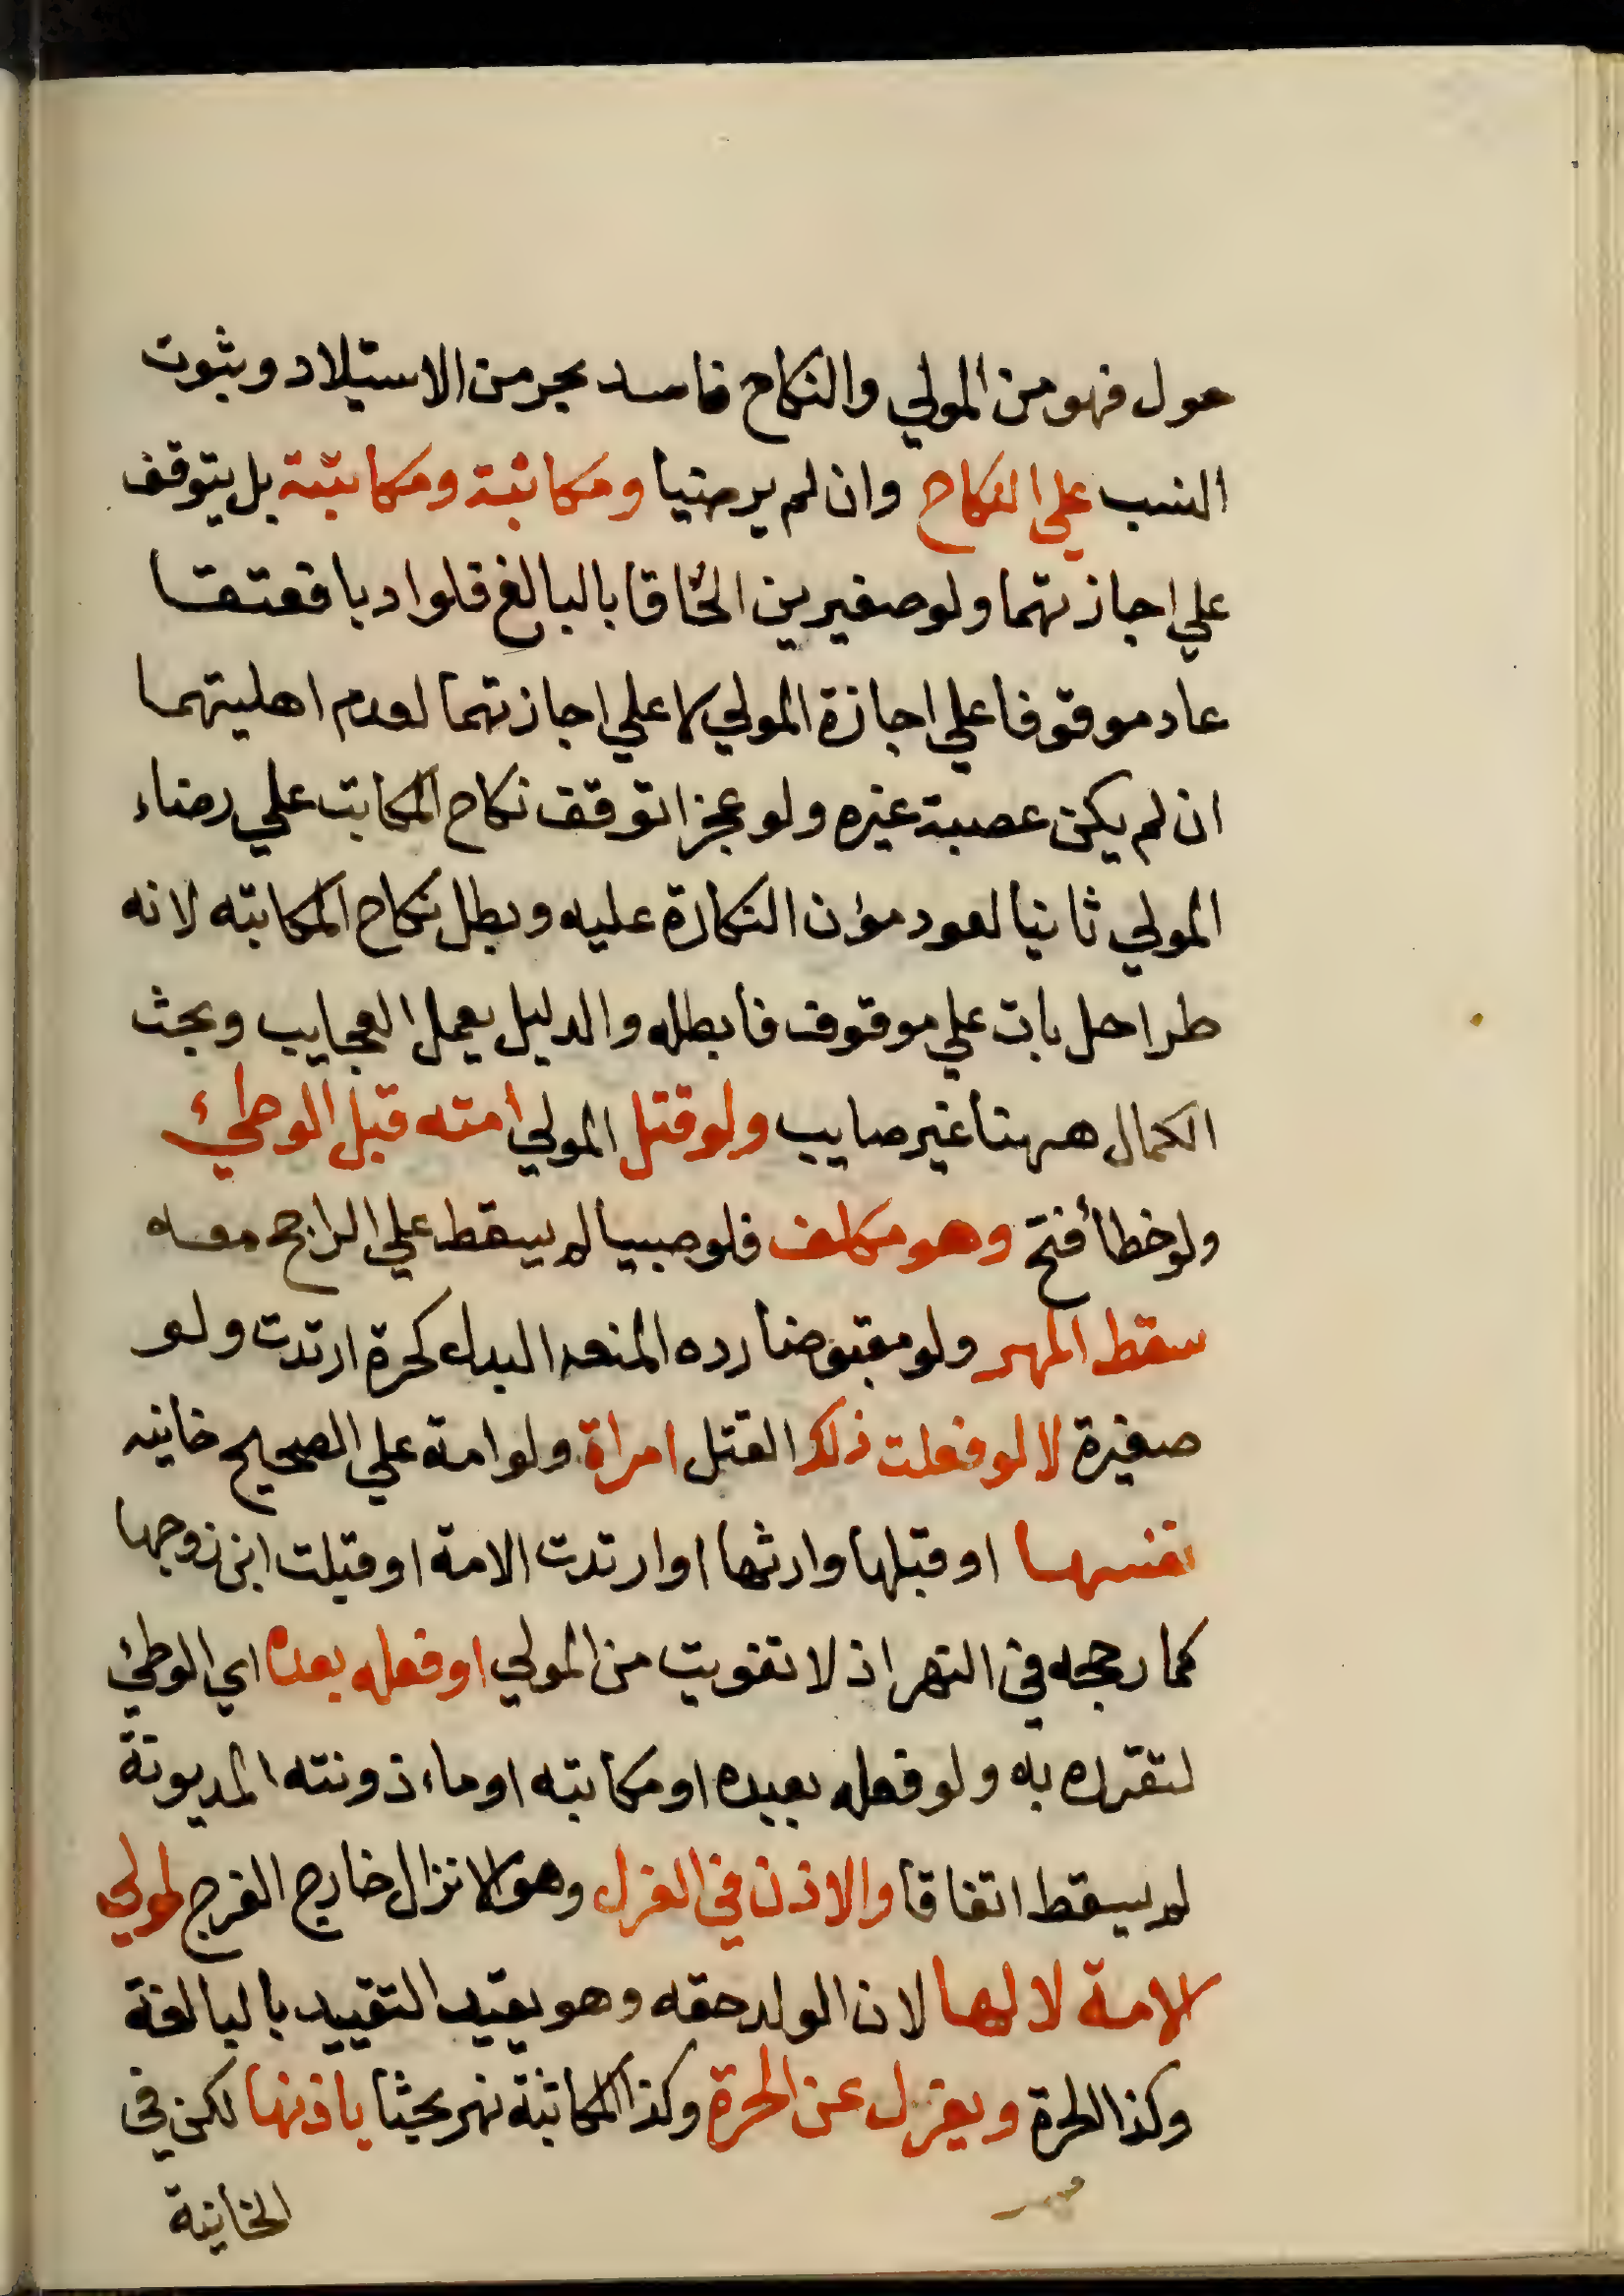 حول فهو من المولي والنكاح فاسد بحر من الاستيلاد وثبوت
النسب علي النكاح وان لم يرضيا ومكاتبة ومكاتبته بل يتوقف
علي اجازتهما ولو صغيرين الحاقا بالبالغ فلو اديا فعتقا
عاد موقوفا علي اجازة المولي لا علي اجازتهما لعدم اهليتهما
ان لم يكن عصبة غيره ولو عجزا توقف نكاح المكاتب علي رضاء
المولي ثانيا لعود مؤن النكارة عليه وبطل نكاح المكاتبه لانه
طرا حل بات علي موقوف فابطله والدليل يعمل العجايب وبحث
الكمال ههنا غير صايب ولو قتل المولي امته قبل الوطئ
ولو خطأ فتح وهو مكلف فلو صبيا لم يسقط علي الراجح
سقط المهر ولو مقبوضا رده المنعه البدل كحرة ارتدت ولو
صغيرة لا لو فعلت ذلك القتل امراة ولو امة علي الصحيح خانيه
نفسها او قتلها وارثها او ارتدت الامة او قبلت ابن زوجها
كما رجحه في النهر اذ لا تفويت من المولي او فعله بعده اي الوطئ
لتقرره به ولو فعله بعبده او مكاتبته او ماءذونته المديونة
لم يسقط اتفاقا والاذن في العزل وهو الانزال خارج الفرج لمولي
الامة لا لها لان الولد حقه وهو يفيد التقييد بالبالغة
وكذا الحرة ويعزل عن الحرة وكذا المكاتبة نهر بحثا باذنها لكن في
الخانية